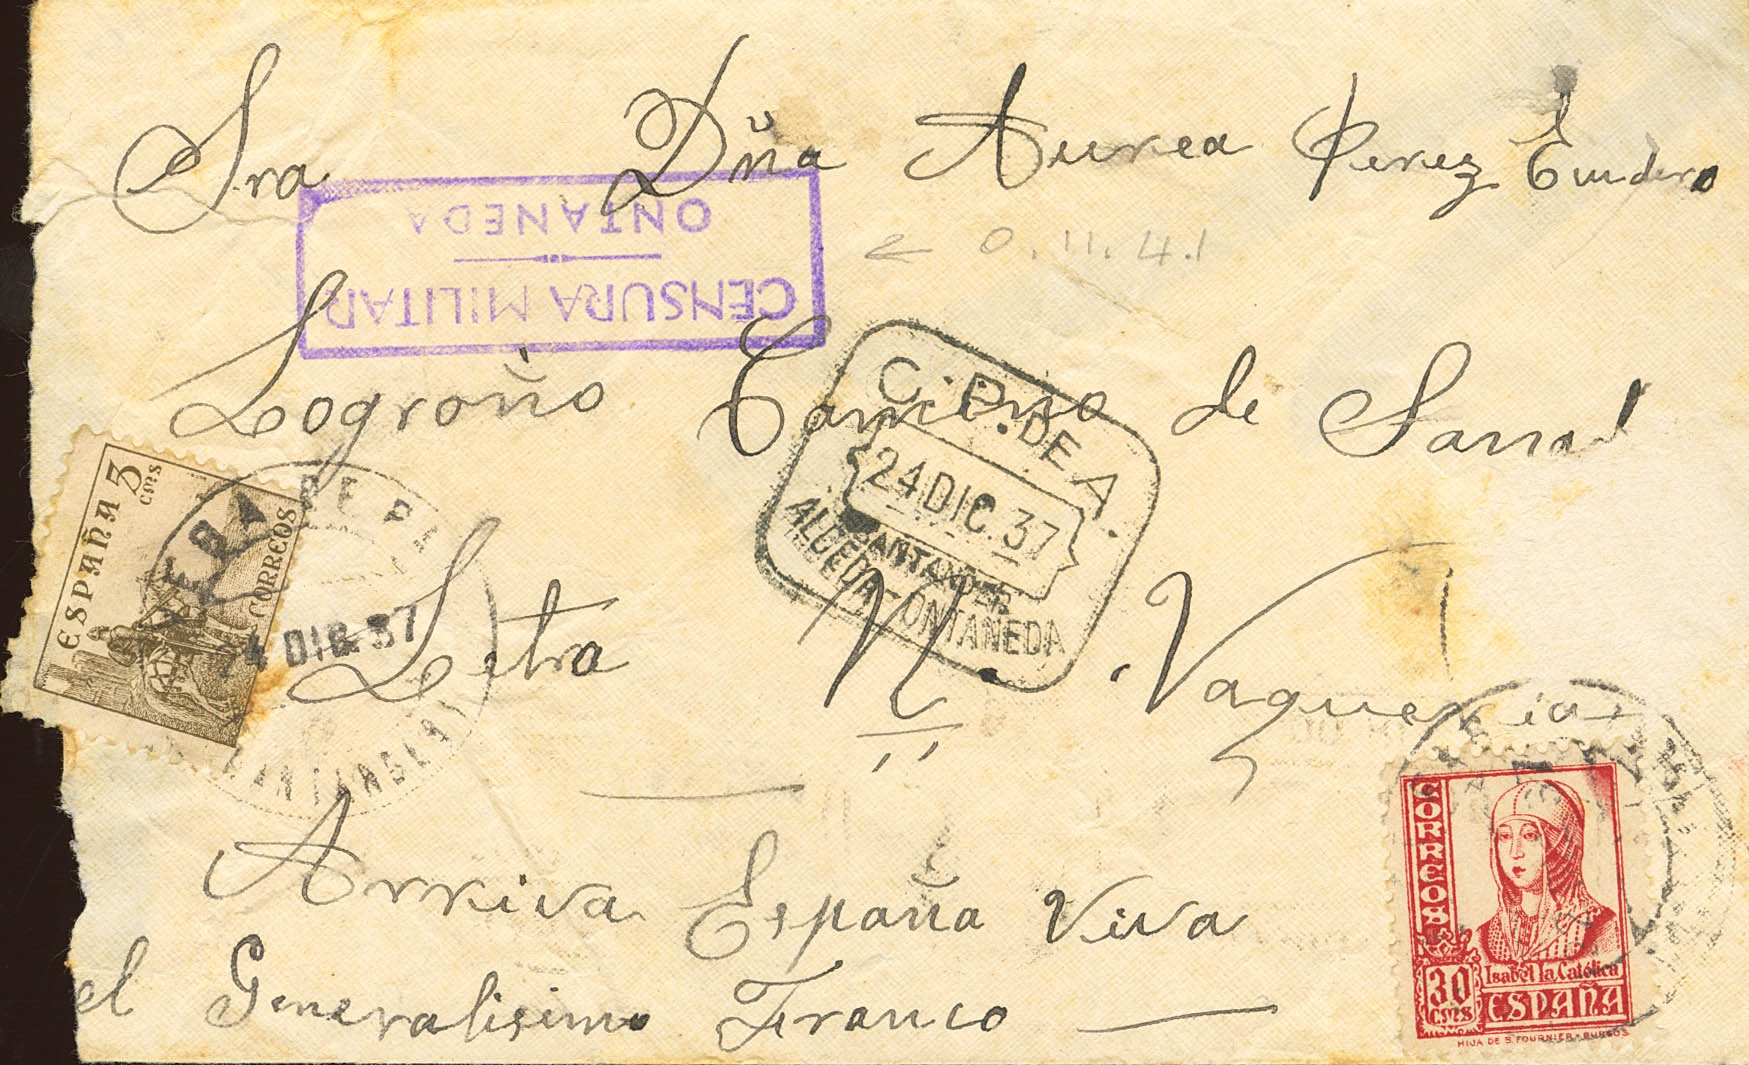 Sra Dña Aurea Perez
ONTANEDA
CENSURA MILITAR
← O.11.41
Logroño Camino de
C.P. DE A.
24 DIC. 37
SANTANDER
ALCEDA-ONTANEDA
ESPAÑA 5 cms
CORREOS
ERA DE PA
24 DIC 37
SANTANDER
Letra N. Vaqueria
Arriva España Viva
el Generalisimo Franco
CORREOS
Isabel la Católica
30 cms ESPAÑA
HIJA DE S. FOURNIER - BURGOS